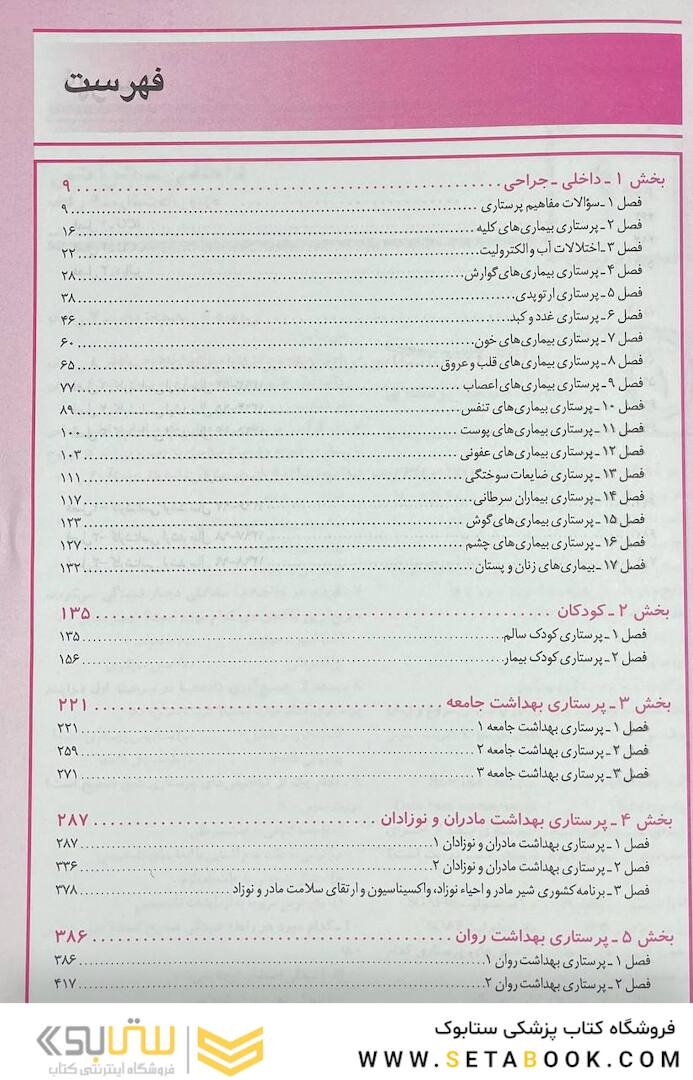 فهرست
بخش ۱ ـ داخلی ـ جراحی ........ ۹
فصل ۱ ـ سؤالات مفاهیم پرستاری ........ ۹
فصل ۲ ـ پرستاری بیماری‌های کلیه ........ ۱۶
فصل ۳ ـ اختلالات آب و الکترولیت ........ ۲۲
فصل ۴ ـ پرستاری بیماری‌های گوارش ........ ۲۸
فصل ۵ ـ پرستاری ارتوپدی ........ ۳۸
فصل ۶ ـ پرستاری غدد و کبد ........ ۴۶
فصل ۷ ـ پرستاری بیماری‌های خون ........ ۶۰
فصل ۸ ـ پرستاری بیماری‌های قلب و عروق ........ ۶۵
فصل ۹ ـ پرستاری بیماری‌های اعصاب ........ ۷۷
فصل ۱۰ ـ پرستاری بیماری‌های تنفس ........ ۸۹
فصل ۱۱ ـ پرستاری بیماری‌های پوست ........ ۱۰۰
فصل ۱۲ ـ پرستاری بیماری‌های عفونی ........ ۱۰۳
فصل ۱۳ ـ پرستاری ضایعات سوختگی ........ ۱۱۱
فصل ۱۴ ـ پرستاری بیماران سرطانی ........ ۱۱۷
فصل ۱۵ ـ پرستاری بیماری‌های گوش ........ ۱۲۳
فصل ۱۶ ـ پرستاری بیماری‌های چشم ........ ۱۲۷
فصل ۱۷ ـ بیماری‌های زنان و پستان ........ ۱۳۲
بخش ۲ ـ کودکان ........ ۱۳۵
فصل ۱ ـ پرستاری کودک سالم ........ ۱۳۵
فصل ۲ ـ پرستاری کودک بیمار ........ ۱۵۶
بخش ۳ ـ پرستاری بهداشت جامعه ........ ۲۲۱
فصل ۱ ـ پرستاری بهداشت جامعه ۱ ........ ۲۲۱
فصل ۲ ـ پرستاری بهداشت جامعه ۲ ........ ۲۵۹
فصل ۳ ـ پرستاری بهداشت جامعه ۳ ........ ۲۷۱
بخش ۴ ـ پرستاری بهداشت مادران و نوزادان ........ ۲۸۷
فصل ۱ ـ پرستاری بهداشت مادران و نوزادان ۱ ........ ۲۸۷
فصل ۲ ـ پرستاری بهداشت مادران و نوزادان ۲ ........ ۳۳۶
فصل ۳ ـ برنامه کشوری شیر مادر و احیاء نوزاد، واکسیناسیون و ارتقای سلامت مادر و نوزاد ........ ۳۷۸
بخش ۵ ـ پرستاری بهداشت روان ........ ۳۸۶
فصل ۱ ـ پرستاری بهداشت روان ۱ ........ ۳۸۶
فصل ۲ ـ پرستاری بهداشت روان ۲ ........ ۴۱۷
فروشگاه کتاب پزشکی ستابوک
WWW.SETABOOK.COM
ستابوک
فروشگاه اینترنتی کتاب